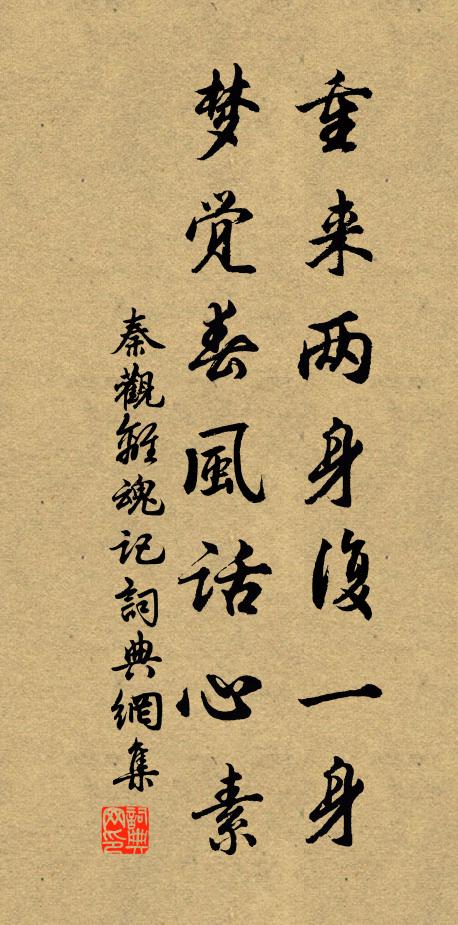 重来两身復一身
梦觉春風话心素
秦觀離魂记詞典網集
詞典網印